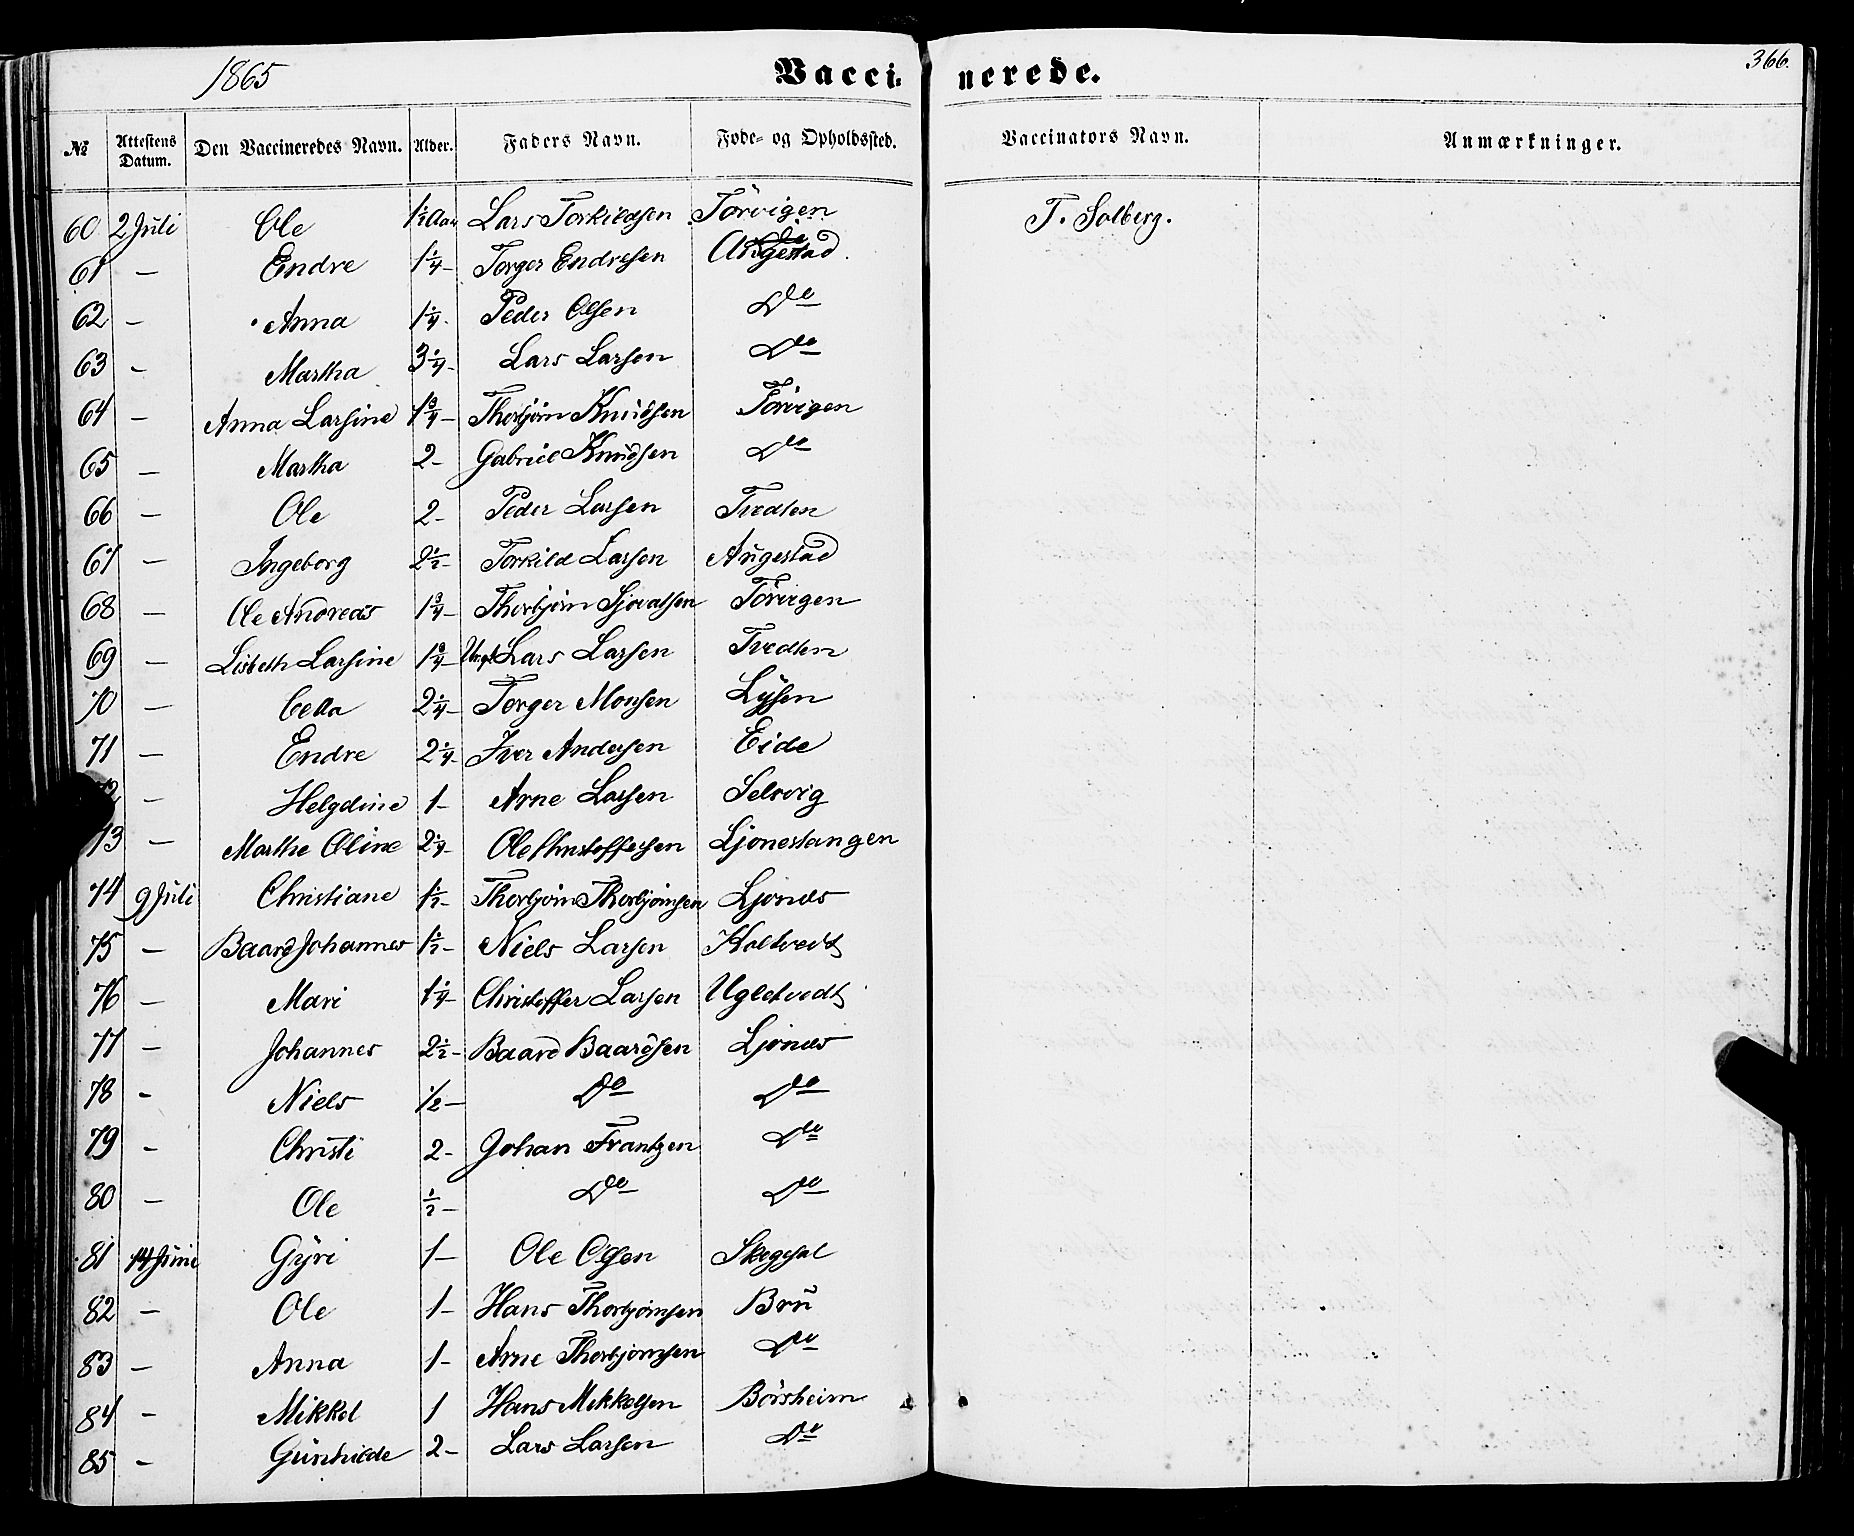 1865 Vaccinerede. 366.
№ Attestens Datum. Den Vaccineredes Navn. Alder. Faders Navn. Føde- og Opholdssted. Vaccinators Navn. Anmærkninger.
60 2 Juli Ole 1½ Aar Lars Torkildsen Törvigen T. Solberg.
61 — Endre 1¼ — Torger Endresen Angestad.
62 — Anna 1¼ - Peder Olsen Do
63 - Martha 3¼ - Lars Larsen Do
64 — Anna Larsine 1¾ — Thorbjörn Knudsen Törvigen
65 — Martha 2 - Gabriel Knudsen Do
66 — Ole 2 - Peder Larsen Tvedten
67 — Ingeborg 2½ - Torkild Larsen Augestad
68 — Ole Andreas 1¾ — Thorbjörn Sjovatsen Törvigen
69 — Lisbeth Larsine 1¾ — Ungk. Lars Larsen Tvedten
70 — Cella 2¼ — Torger Monsen Lysen
71 — Endre 2¼ - Iver Andersen Eide
72 — Helgdine 1 - Arne Larsen Selsvig
73 — Marthe Oline 2¼ - Ole Christoffersen Ljonestangen
74 9 Juli Christiane 1½ - Thorbjörn Thorbjörnsen Ljones
75 — Baard Johannes 1½ - Niels Larsen Holtvedt
76 — Mari 1¼ - Christoffer Larsen Ugletvedt
77 — Johannes 2½ - Baard Baardsen Ljones
78 - Niels 1/2 — Do Do
79 - Christi 2 - Johan Frantzen Do
80 — Ole ½ — Do Do
81 14 Juni Gyri 1 — Ole Olsen Skeggjal
82 — Ole 1 - Hans Thorbjörnsen Bru
83 — Anna 1 - Arne Thorbjörnsen Do
84 - Mikkel 1 Hans Mikkelsen Börsheim
85 - Gunhilde 2 - Lars Larsen Do